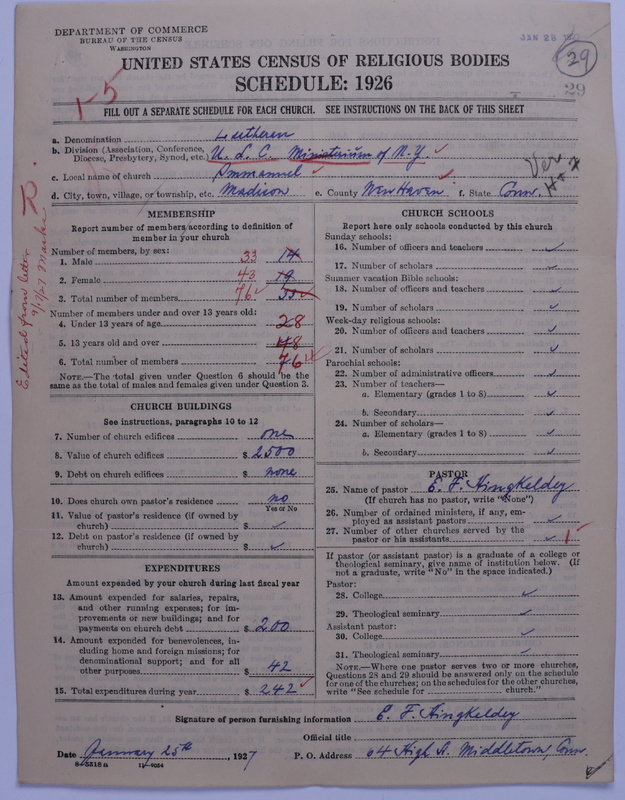 DEPARTMENT OF COMMERCE
BUREAU OF THE CENSUS
WASHINGTON
JAN 28
29
29
UNITED STATES CENSUS OF RELIGIOUS BODIES
SCHEDULE: 1926
1-5
FILL OUT A SEPARATE SCHEDULE FOR EACH CHURCH. SEE INSTRUCTIONS ON THE BACK OF THIS SHEET
a. Denomination Lutheran
b. Division (Association, Conference, Diocese, Presbytery, Synod, etc.) U. L. C. Ministerium of N.Y.
c. Local name of church Immanuel
d. City, town, village, or township, etc. Madison e. County New Haven f. State Conn.
Ver
Edited from letter
MEMBERSHIP
Report number of members according to definition of
member in your church
Number of members, by sex:
1. Male 33 14
2. Female 43 19
3. Total number of members 76 33
Number of members under and over 13 years old:
4. Under 13 years of age 28
5. 13 years old and over 48
6. Total number of members 76
NOTE.—The total given under Question 6 should be the
same as the total of males and females given under Question 3.
CHURCH BUILDINGS
See instructions, paragraphs 10 to 12
7. Number of church edifices one
8. Value of church edifices $ 2500
9. Debt on church edifices $ none
10. Does church own pastor's residence no
Yes or No
11. Value of pastor's residence (if owned by
church) $ ✓
12. Debt on pastor's residence (if owned by
church) $ ✓
EXPENDITURES
Amount expended by your church during last fiscal year
13. Amount expended for salaries, repairs,
and other running expenses; for im-
provements or new buildings; and for
payments on church debt $ 200
14. Amount expended for benevolences, in-
cluding home and foreign missions; for
denominational support; and for all
other purposes $ 42
15. Total expenditures during year $ 242
CHURCH SCHOOLS
Report here only schools conducted by this church
Sunday schools:
16. Number of officers and teachers ✓
17. Number of scholars ✓
Summer vacation Bible schools:
18. Number of officers and teachers ✓
19. Number of scholars ✓
Week-day religious schools:
20. Number of officers and teachers ✓
21. Number of scholars ✓
Parochial schools:
22. Number of administrative officers ✓
23. Number of teachers—
a. Elementary (grades 1 to 8) ✓
b. Secondary ✓
24. Number of scholars—
a. Elementary (grades 1 to 8) ✓
b. Secondary ✓
PASTOR
25. Name of pastor E. F. Hingkeldey
(If church has no pastor, write "None")
26. Number of ordained ministers, if any, em-
ployed as assistant pastors ✓
27. Number of other churches served by the
pastor or his assistants ✓ 1
If pastor (or assistant pastor) is a graduate of a college or
theological seminary, give name of institution below. (If
not a graduate, write "No" in the space indicated.)
Pastor:
28. College ✓
29. Theological seminary ✓
Assistant pastor:
30. College ✓
31. Theological seminary ✓
NOTE.—Where one pastor serves two or more churches,
Questions 28 and 29 should be answered only on the schedule
for one of the churches; on the schedules for the other churches,
write "See schedule for church."
Signature of person furnishing information E. F. Hingkeldey
Official title
Date January 25th, 1927 P. O. Address 64 High St. Middletown, Conn.
8-5318a 11-9054